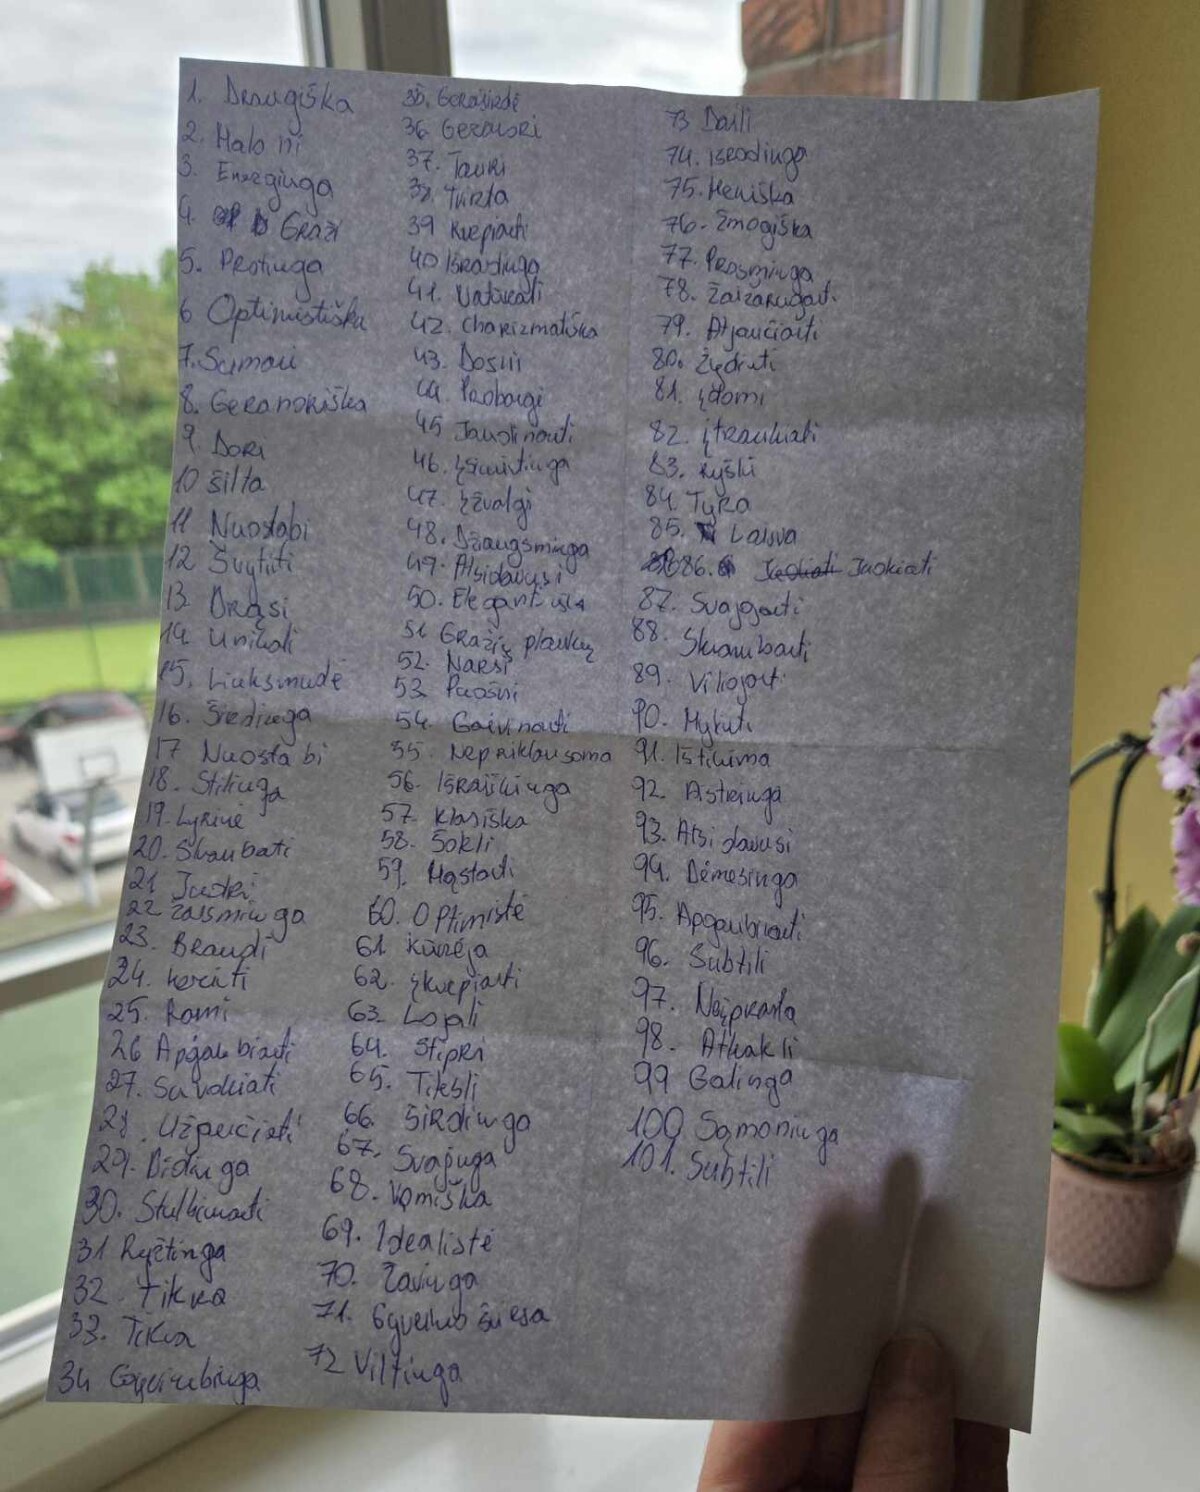 1. Draugiška
2. Maloni
3. Energinga
4. Graži
5. Protinga
6 Optimistiška
7. Sumani
8. Geranoriška
9. Dora
10 Šilta
11 Nuostabi
12 Švytinti
13 Drąsi
14 Unikali
15. Linksmuolė
16. Širdinga
17 Nuostabi
18. Stilinga
19. Lyrinė
20. Skambati
21 Jautri
22 Žaisminga
23. Brandi
24. kerinti
25. Rami
26 Apgaubianti
27. Suvokianti
28. Užjaučianti
29. Didinga
30. Stulbinanti
31 Ryžtinga
32. Tikra
33. Tikra
34
35. Geraširdė
36. Gerausri
37. Tauri
38. Tvirta
39 Kvepianti
40 Išradinga
41. Natūrali
42. Charizmatiška
43. Dosni
44. Prabangi
45 Jaudinanti
46. Įsimintinga
47. Įžvalgi
48. Džiaugsminga
49. Atsidavusi
50. Elegantiška
51 Gražių plaukų
52. Narsi
53 Puošni
54. Gaivinanti
55. Nepriklausoma
56. Išraiškinga
57. Klasiška
58. Šokli
59. Mąstanti
60. Optimistė
61. Kūrėja
62. Įkvepianti
63. Lojali
64. Stipri
65. Tiksli
66. Širdinga
67. Svajinga
68. Romiška
69. Idealistė
70. Žavinga
71. Gyvenimo šviesa
72 Viltinga
73 Daili
74. Išradinga
75. Meniška
76. Žmogiška
77. Prasminga
78.
79. Atjaučianti
80. Žydinti
81. Įdomi
82. Įtraukianti
83. Ryški
84. Tyra
85. Laisva
86. Juokianti Juokianti
87. Svajojanti
88. Skambanti
89. Viliojanti
90. Mylinti
91. Ištikima
92. Aistringa
93. Atsidavusi
94. Dėmesinga
95. Apgaubianti
96. Subtili
97. Neįprasta
98. Atkakli
99 Galinga
100 Sąmoninga
101. Subtili